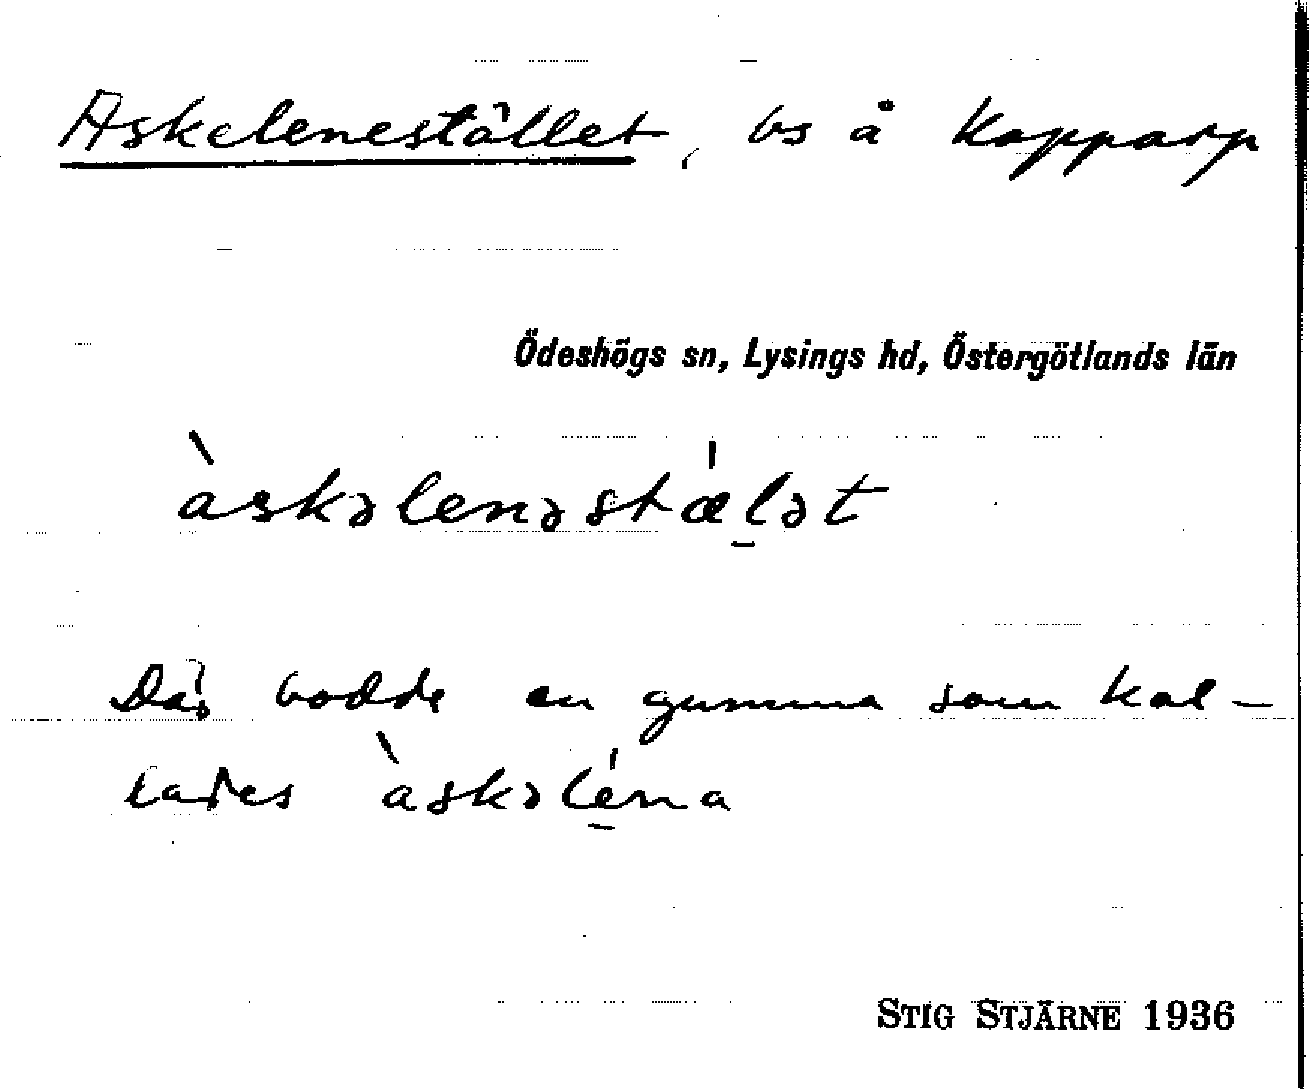 Askelenestället, bs å Kopparp
Ödeshögs sn, Lysings hd, Östergötlands län
àskəlenəstæ̍ḻət
Där bodde en gumma som kal-
lades àskəlé̱na
STIG STJÄRNE 1936